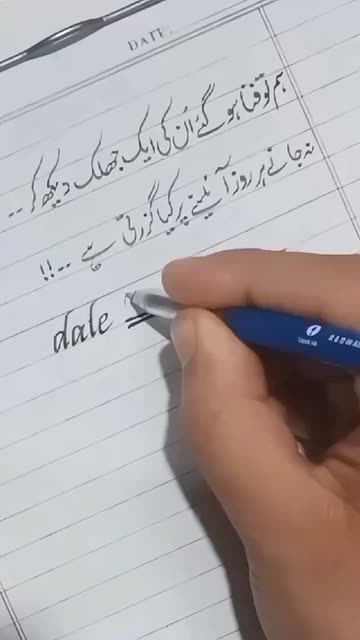 DATE:
ہم تو فنا ہو گئے اُن کی ایک جھلک دیکھ کر --
نہ جانے ہر روز آئینے پر کیا گزرتی ہے --!!
dale